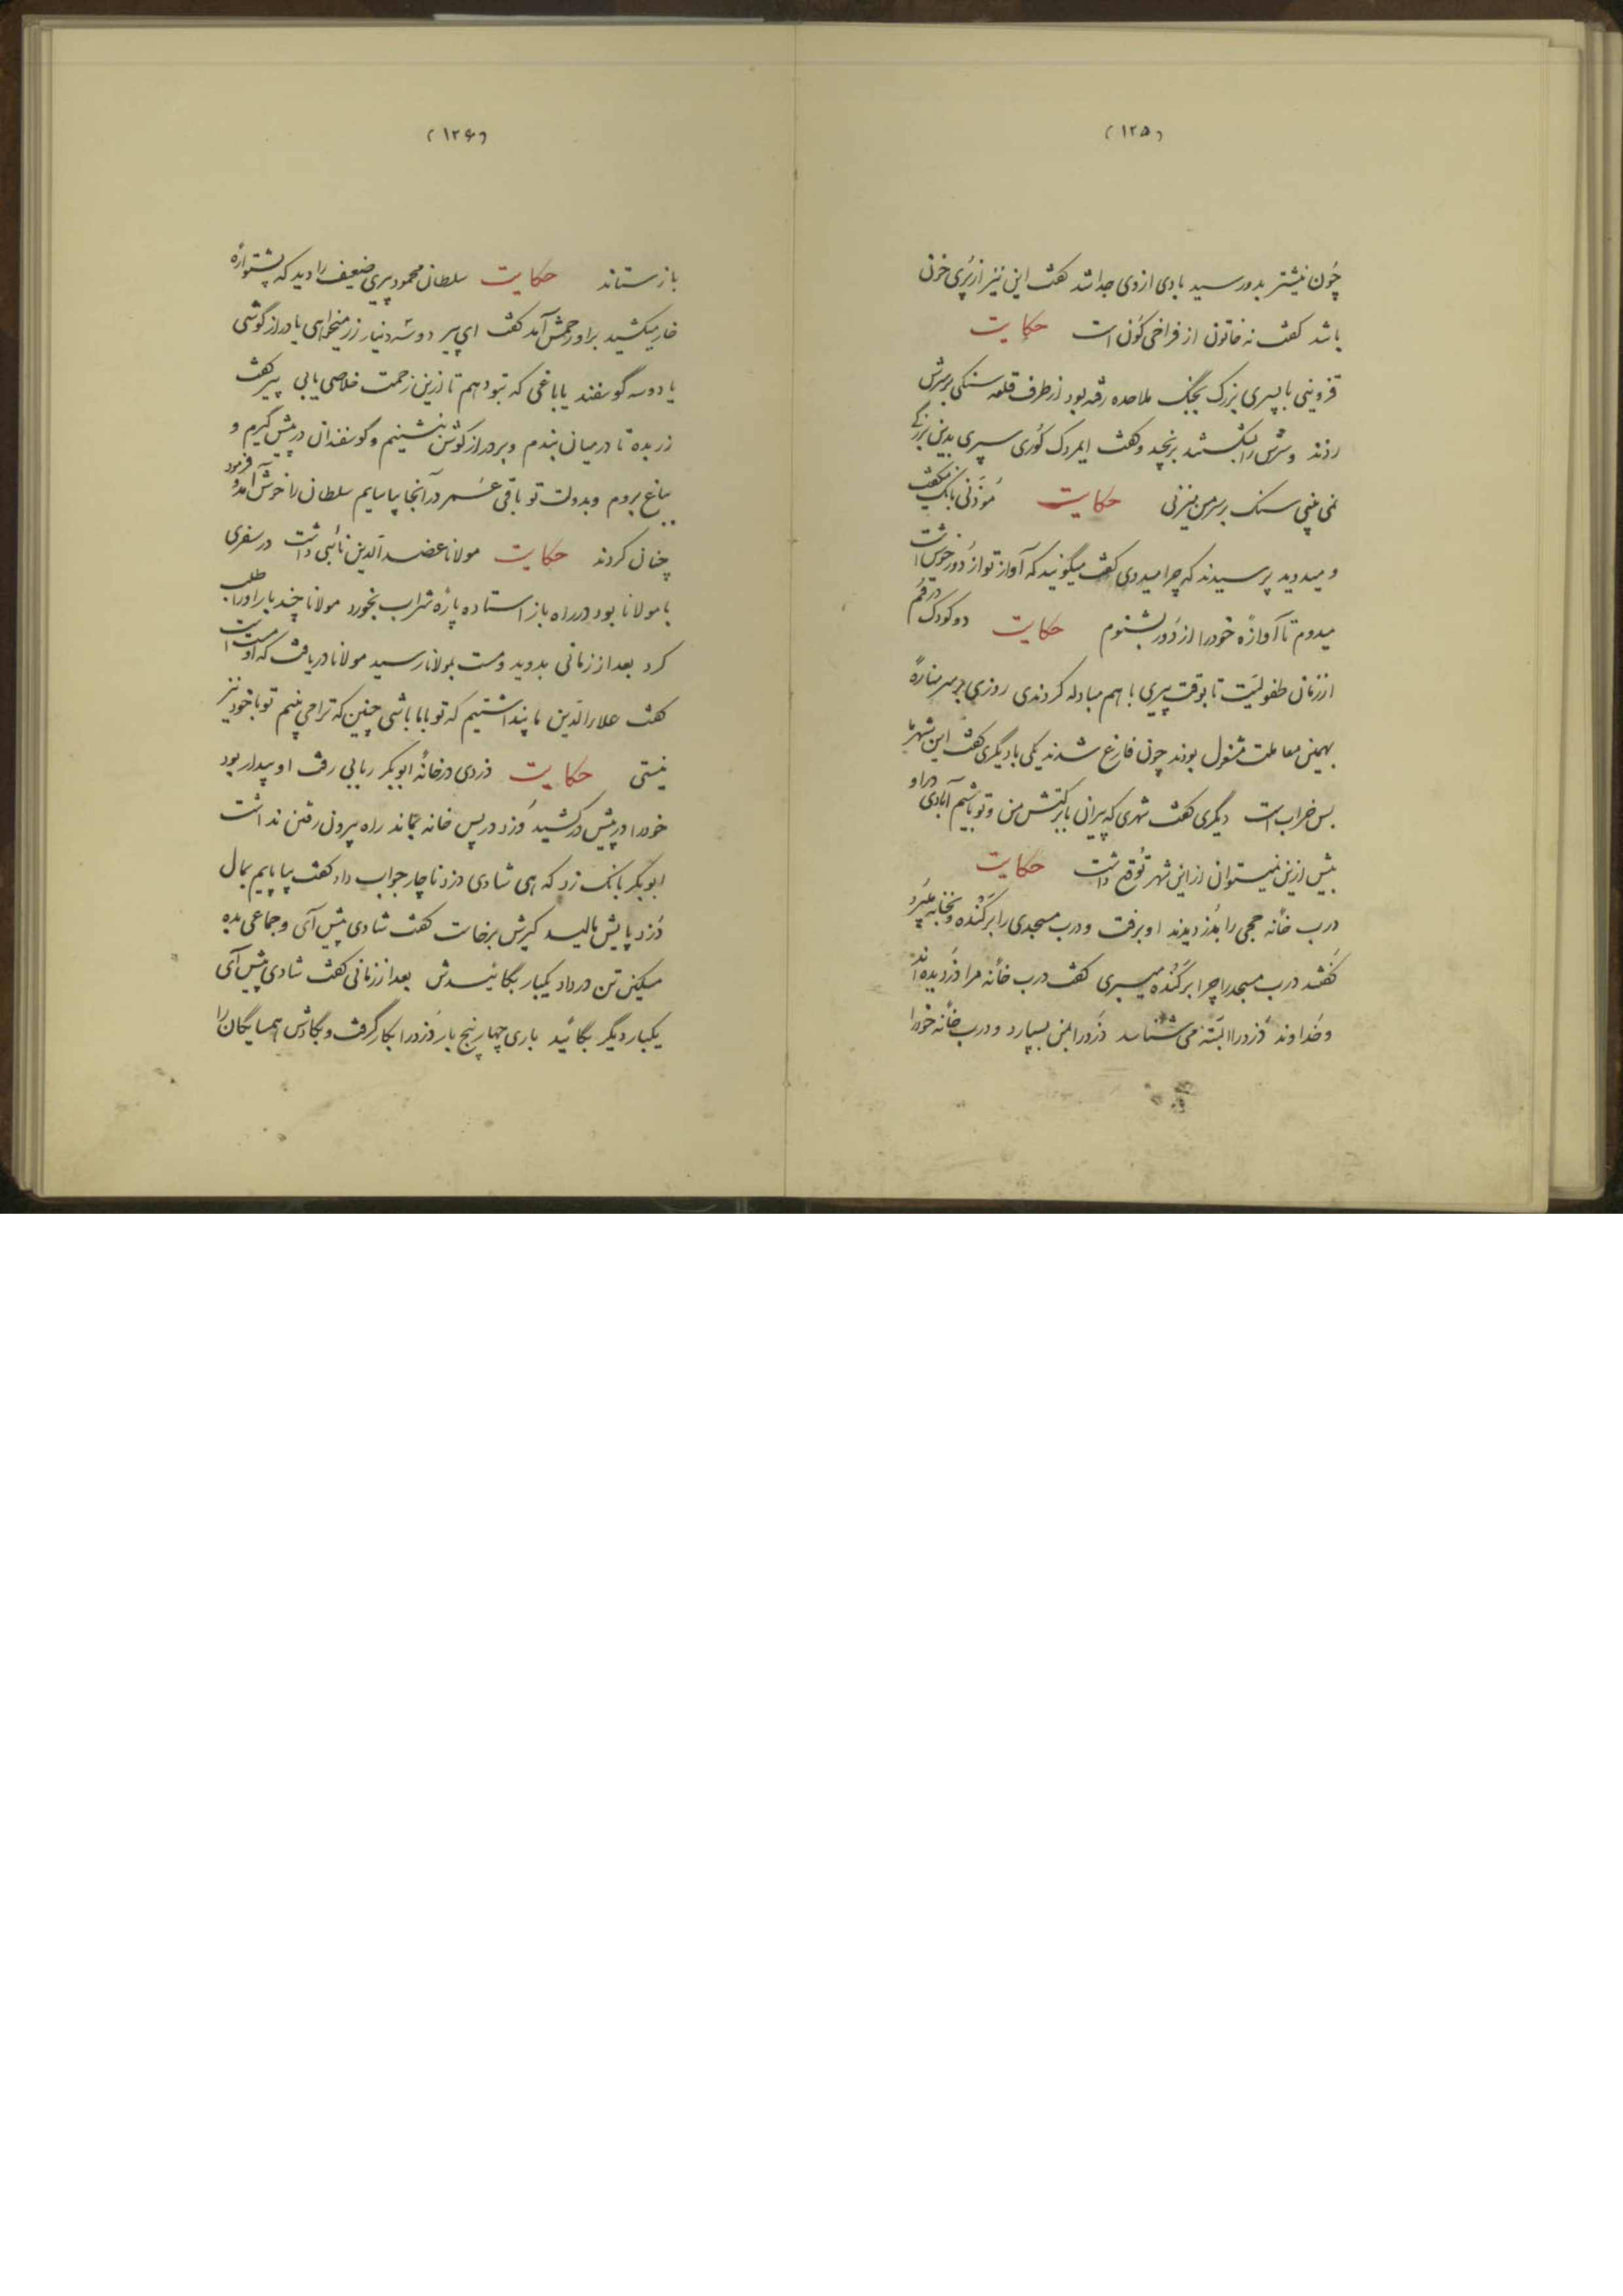 (۱۲۵)
چُون نیشتر بدو رسید بادی از وی جدا شد گفت این نیز از پُری خون
باشد گفت نه خاتون از فراخی کُون است حکایت
قزوینی با سپری بزرگ بجنگ ملاحده رفته بود از طرف قلعه سنگی بر سرش
زدند و سرش را بشکستند برنجید و گفت ایمردک کُوری سپری بدین بزرگی
نمی بینی سنگ بر سر من میزنی حکایت مُؤذّنی بانگ میگفت
و میدوید پرسیدند که چرا میدوی گفت میگویند که آواز تو از دُور خوش است
میدوم تا آوازهٔ خود را از دُور بشنوم حکایت دو کودک در قُم
از زمان طفولیّت تا بوقت پیری با هم مبادله کردندی روزی بر سر منارهٔ
بهمین معاملت مشغول بودند چون فارغ شدند یکی با دیگری گفت این شهر ما
بس خراب است دیگری گفت شهری که پیران با برکتش من و تو باشیم آبادی در او
بیش ازین نمیتوان از این شهر تُوقع داشت حکایت
درب خانه حجی را بدُزدیدند او برفت و درب مسجدی را بر کَنده و بخانه میبُرد
گفتند درب مسجد را چرا بر کَنده میبری گفت درب خانه مرا دُزدیده‌اند
و خداوند دُزد را البتّه می شناسد دُزد را بمن بسپارد و درب خانه خود را
(۱۲۶)
باز ستاند حکایت سلطان محمود پیری ضعیف را دید که پشتوارهٔ
خار میکشید بر او رحمش آمد گفت ای پیر دو سه دینار زر میخواهی یا دراز گوشی
یا دو سه گوسفند یا باغی که بتو دهم تا ازین زحمت خلاصی یابی پیر گفت
زر بده تا در میان بندم و بر دراز گوش بنشینم و گوسفندان در پیش گیرم و
بباغ بروم و بدولت تو باقی عُمر در آنجا بیاسایم سلطان را خوش آمد و فرمود
چنان کردند حکایت مولانا عضد الدین نائبی داشت در سفری
با مولانا بود در راه باز استاده پارهٔ شراب بخورد مولانا چند بار او را طلب
کرد بعد از زمانی بدوید و مست بمولانا رسید مولانا دریافت که او مست است
گفت علاء الدّین ما پنداشتیم که تو با ما باشی چنین که ترا می بینم تو با خود نیز
نیستی حکایت دزدی در خانهٔ ابوبکر ربابی رفت او بیدار بود
خود را در پیش در کشید دُزد در پس خانه بماند راه بیرون رفتن نداشت
ابوبکر بانگ زد که هی شادی دزد ناچار جواب داد گفت بیا پایم بمال
دُزد پایش بمالید کیرش برخاست گفت شادی پیش آی و جماعی بده
میکین تن در داد یکبار بگائیدش بعد از زمانی گفت شادی پیش آی
یکبار دیگر بگائید باری چهار پنج بار دُزد را بکار گرفت و بگادش همسایگان را